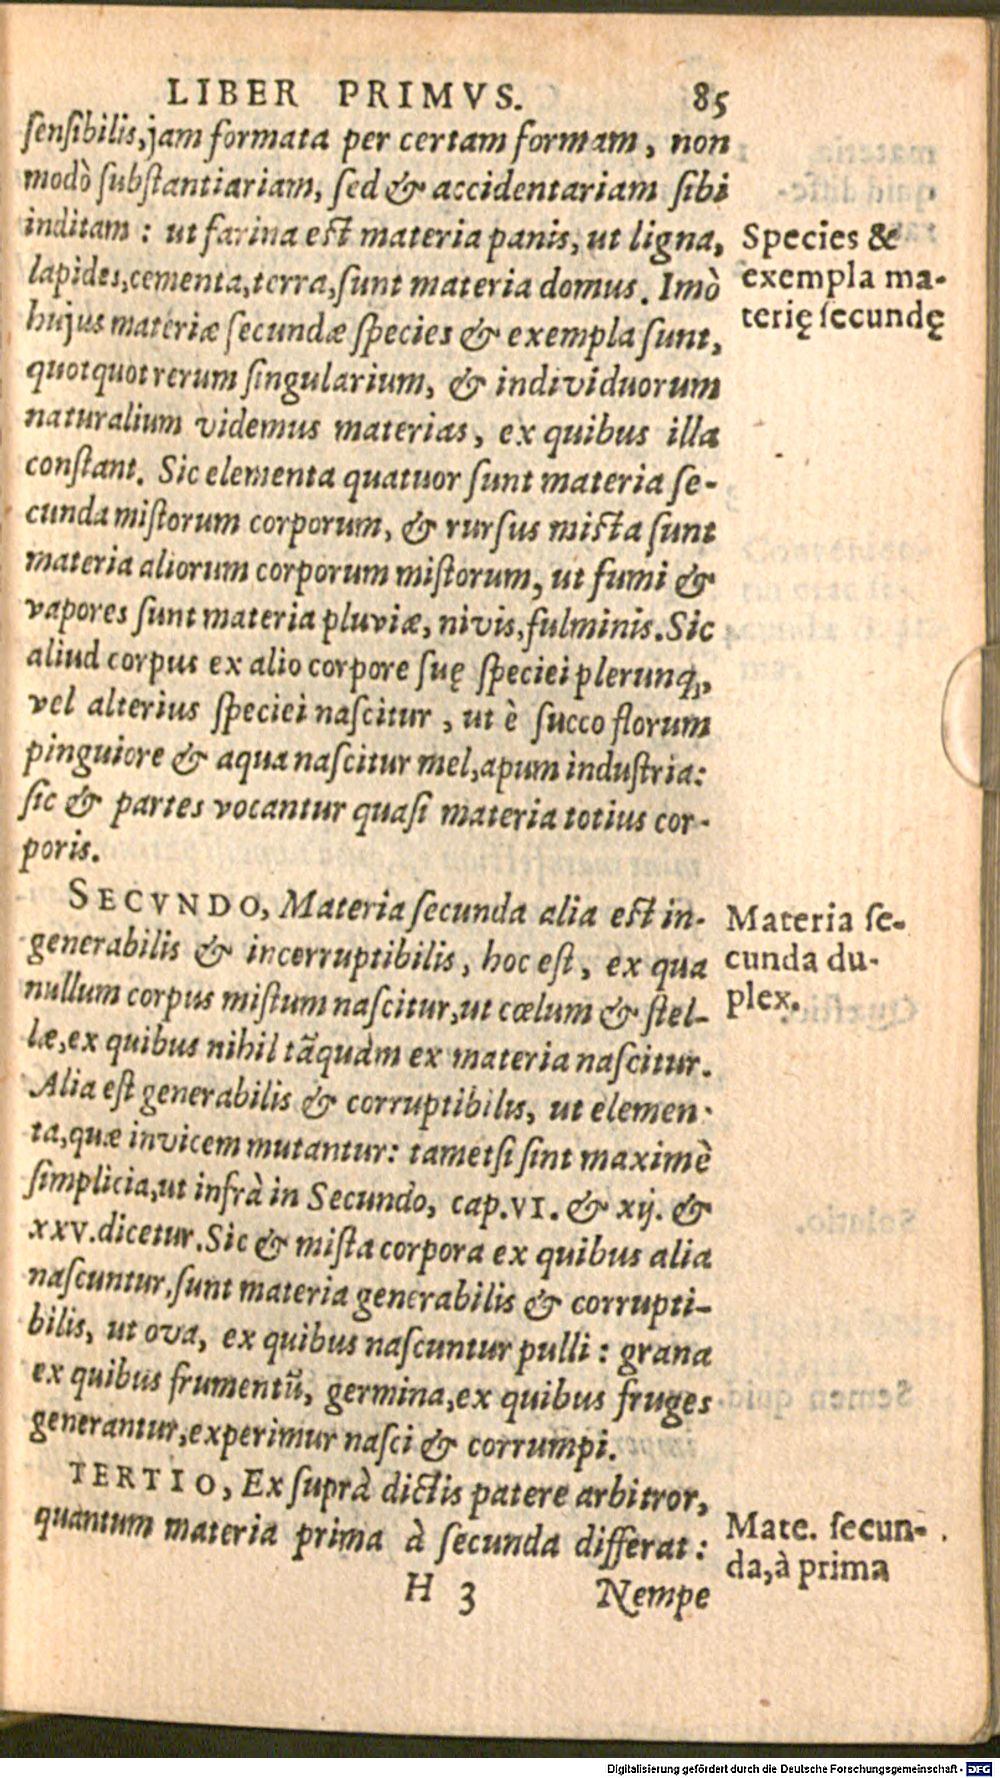 LIBER PRIMVS. 85
ſenſibilis, jam formata per certam formam, non
modò ſubſtantiariam, ſed & accidentariam ſibi
inditam: ut farina eſt materia panis, ut ligna,
lapides, cementa, terra, ſunt materia domus. Imò
hujus materiæ ſecundæ ſpecies & exempla ſunt,
quotquot rerum ſingularium, & individuorum
naturalium videmus materias, ex quibus illa
conſtant. Sic elementa quatuor ſunt materia ſe-
cunda miſtorum corporum, & rurſus micta ſunt
materia aliorum corporum miſtorum, ut fumi &
vapores ſunt materia pluviæ, nivis, fulminis. Sic
aliud corpus ex alio corpore ſuę ſpeciei plerunq;,
vel alterius ſpeciei naſcitur, ut è ſucco florum
pinguiore & aqua naſcitur mel, apum induſtria:
ſic & partes vocantur quaſi materia totius cor-
poris.
Species &
exempla ma-
terię ſecundę
SECVNDO, Materia ſecunda alia eſt in-
generabilis & incorruptibilis, hoc eſt, ex qua
nullum corpus miſtum naſcitur, ut cœlum & ſtel-
læ, ex quibus nihil tãquàm ex materia naſcitur.
Alia eſt generabilis & corruptibilis, ut elemen-
ta, quæ invicem mutantur: tametſi ſint maximè
ſimplicia, ut infrà in Secundo, cap. VI. & xij. &
xxv. dicetur. Sic & miſta corpora ex quibus alia
naſcuntur, ſunt materia generabilis & corrupti-
bilis, ut ova, ex quibus naſcuntur pulli: grana
ex quibus frumentũ, germina, ex quibus fruges
generantur, experimur naſci & corrumpi.
Materia ſe-
cunda du-
plex.
TERTIO, Ex ſuprà dictis patere arbitror,
quantum materia prima à ſecunda differat:
Mate. ſecun-
da, à prima
H 3 Nempe
Digitalisierung gefördert durch die Deutsche Forschungsgemeinschaft - DFG